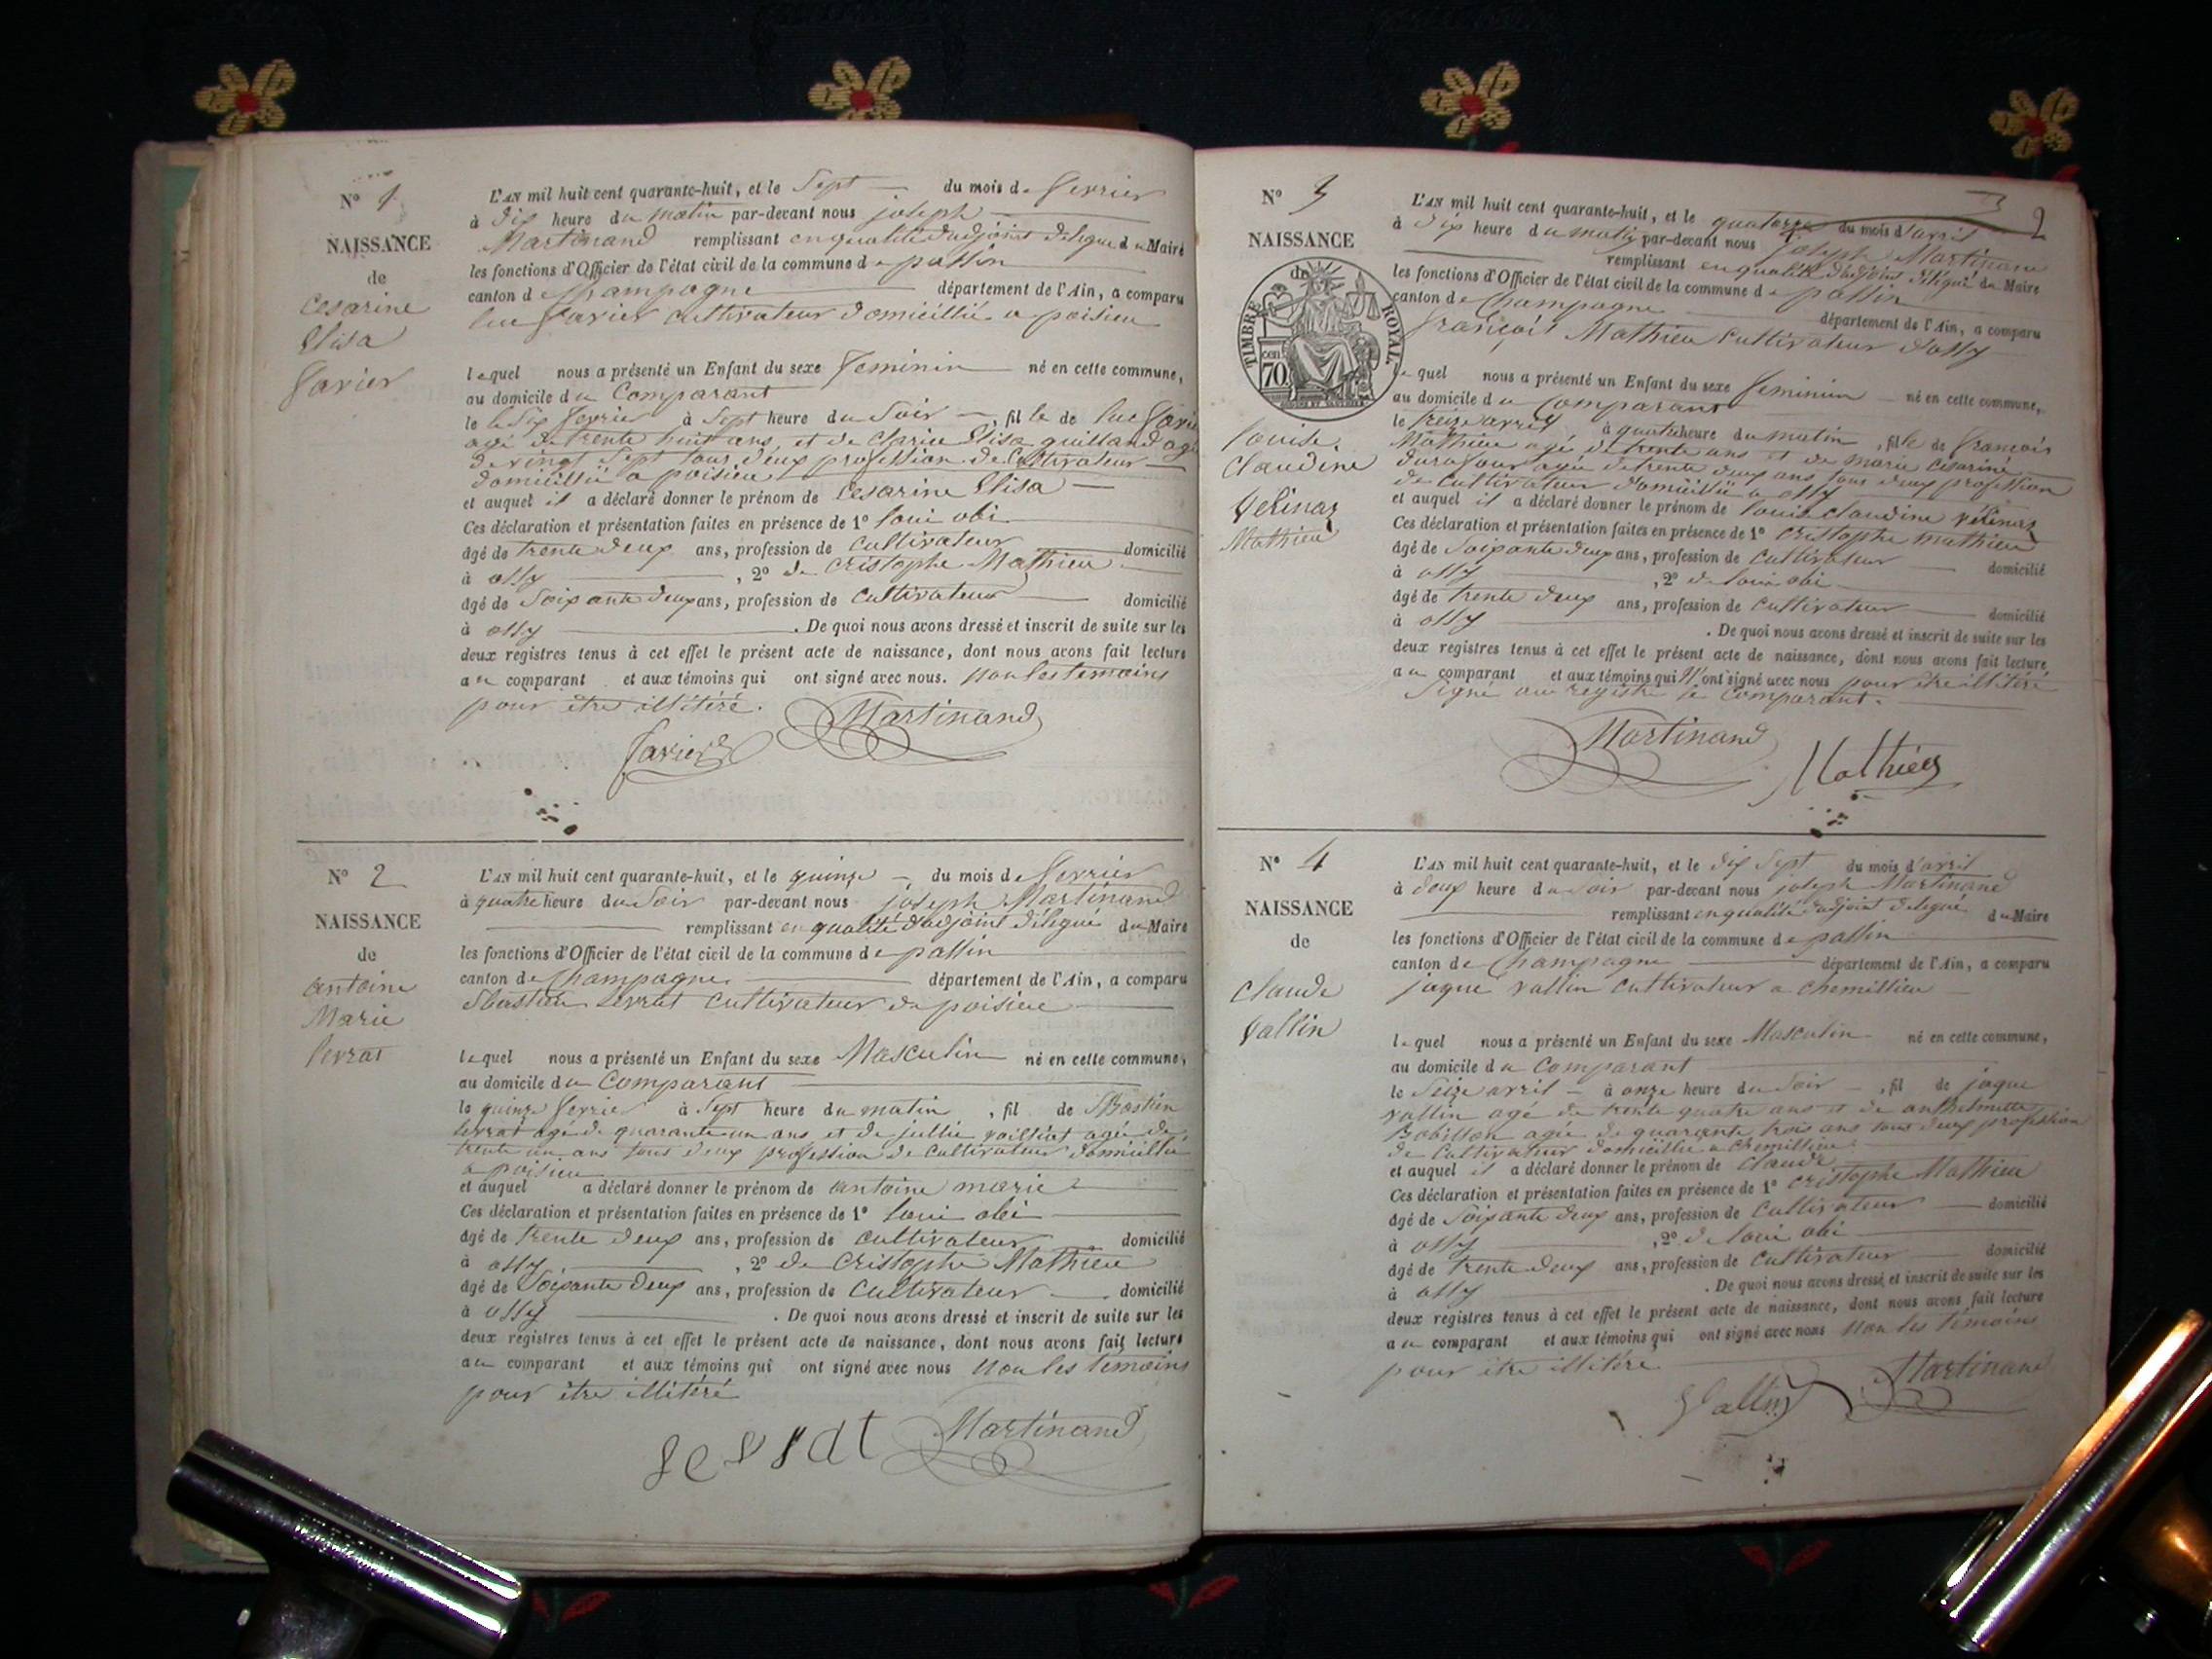 N° 1
NAISSANCE
de
Cesarine
Elisa
Savier
L'AN mil huit cent quarante-huit, et le Sept du mois de fevrier
à dix heure du matin par-devant nous joseph
Martinand remplissant en qualité d'adjoint délegué du Maire
les fonctions d'Officier de l'état civil de la commune de passin
canton de Champagne département de l'Ain, a comparu
luc Savier cultivateur domicillié a poisieu
lequel nous a présenté un Enfant du sexe feminin né en cette commune,
au domicile du Comparant
le le Six fevrier à Sept heure du Soir , fille de luc Savier
agé de trente huit ans, et de Clarice Elisa guilland agé
de vingt Sept tous deux profession de Cultivateur
domicillié a poisieu
et auquel il a déclaré donner le prénom de Cesarine Elisa
Ces déclaration et présentation faites en présence de 1° loui obi
âgé de trente deux ans, profession de Cultivateur domicilié
à ossy , 2° de Cristophe Mathieu
âgé de Soixante deux ans, profession de Cultivateur domicilié
à ossy . De quoi nous avons dressé et inscrit de suite sur les
deux registres tenus à cet effet le présent acte de naissance, dont nous avons fait lecture
au comparant et aux témoins qui ont signé avec nous. Non les temoins
pour être illitéré.
Martinand
Savier
N° 2
NAISSANCE
de
antoine
Marie
serrat
L'AN mil huit cent quarante-huit, et le quinze du mois de fevrier
à quatre heure du Soir par-devant nous joseph Martinand
remplissant en qualité d'adjoint délegué du Maire
les fonctions d'Officier de l'état civil de la commune de passin
canton de Champagne département de l'Ain, a comparu
Sbastien serrat cultivateur de poisieu
lequel nous a présenté un Enfant du sexe Masculin né en cette commune,
au domicile du Comparant
le quinze fevrier à Sept heure du matin , fil de Sbastien
serrat agé de quarante un ans et de jullie agée de
trente un ans tous deux profession de cultivateur domicillié
a poisieu
et auquel a déclaré donner le prénom de antoine marie
Ces déclaration et présentation faites en présence de 1° loui obi
âgé de trente deux ans, profession de cultivateur domicilié
à ossy , 2° de Cristophe Mathieu
âgé de Soixante deux ans, profession de Cultivateur domicilié
à ossy . De quoi nous avons dressé et inscrit de suite sur les
deux registres tenus à cet effet le présent acte de naissance, dont nous avons fait lecture
au comparant et aux témoins qui ont signé avec nous Non les temoins
pour être illitéré
serrat Martinand
3
2
N° 3
NAISSANCE
de
TIMBRE ROYAL
cen 70
louise
Claudine
Vérinaz
Mathieu
L'AN mil huit cent quarante-huit, et le quatorze du mois d'avril
à dix heure du matin par-devant nous joseph Martinand
remplissant en qualité d'adjoint délégué du Maire
les fonctions d'Officier de l'état civil de la commune de passin
canton de Champagne département de l'Ain, a comparu
françois Mathieu Cultivateur d'ossy
lequel nous a présenté un Enfant du sexe feminin né en cette commune,
au domicile du Comparant
le treize avril à quatre heure du matin , fille de françois
Mathieu agé de trente ans et de marie Cesarine
agée de trente deux ans tous deux profession
de Cultivateur domicillié a ossy
et auquel il a déclaré donner le prénom de louise Claudine vérinaz
Ces déclaration et présentation faites en présence de 1° Cristophe mathieu
âgé de Soixante deux ans, profession de Cultivateur domicilié
à ossy , 2° de loui obi
âgé de trente deux ans, profession de Cultivateur domicilié
à ossy . De quoi nous avons dressé et inscrit de suite sur les
deux registres tenus à cet effet le présent acte de naissance, dont nous avons fait lecture
au comparant et aux témoins qui N'ont signé avec nous pour être illitéré
Signé au registre le Comparant.
Martinand
Mathieu
N° 4
NAISSANCE
de
Claude
Vallin
L'AN mil huit cent quarante-huit, et le dix Sept du mois d'avril
à deux heure du Soir par-devant nous joseph Martinand
remplissant en qualité d'adjoint délegué du Maire
les fonctions d'Officier de l'état civil de la commune de passin
canton de Champagne département de l'Ain, a comparu
jaque vallin cultivateur a chemillieu
lequel nous a présenté un Enfant du sexe Masculin né en cette commune,
au domicile du Comparant
le Seize avril à onze heure du Soir , fil de jaque
vallin agé de trente quatre ans et de anthelmette
Bobillon agée de quarante trois ans tous deux profession
de Cultivateur domicillié a chemillieu
et auquel il a déclaré donner le prénom de Claude
Ces déclaration et présentation faites en présence de 1° Cristophe Mathieu
âgé de Soixante deux ans, profession de Cultivateur domicilié
à ossy , 2° de loui obi
âgé de trente deux ans, profession de Cultivateur domicilié
à ossy . De quoi nous avons dressé et inscrit de suite sur les
deux registres tenus à cet effet le présent acte de naissance, dont nous avons fait lecture
au comparant et aux témoins qui ont signé avec nous Non les témoins
pour être illitéré
Vallin Martinand